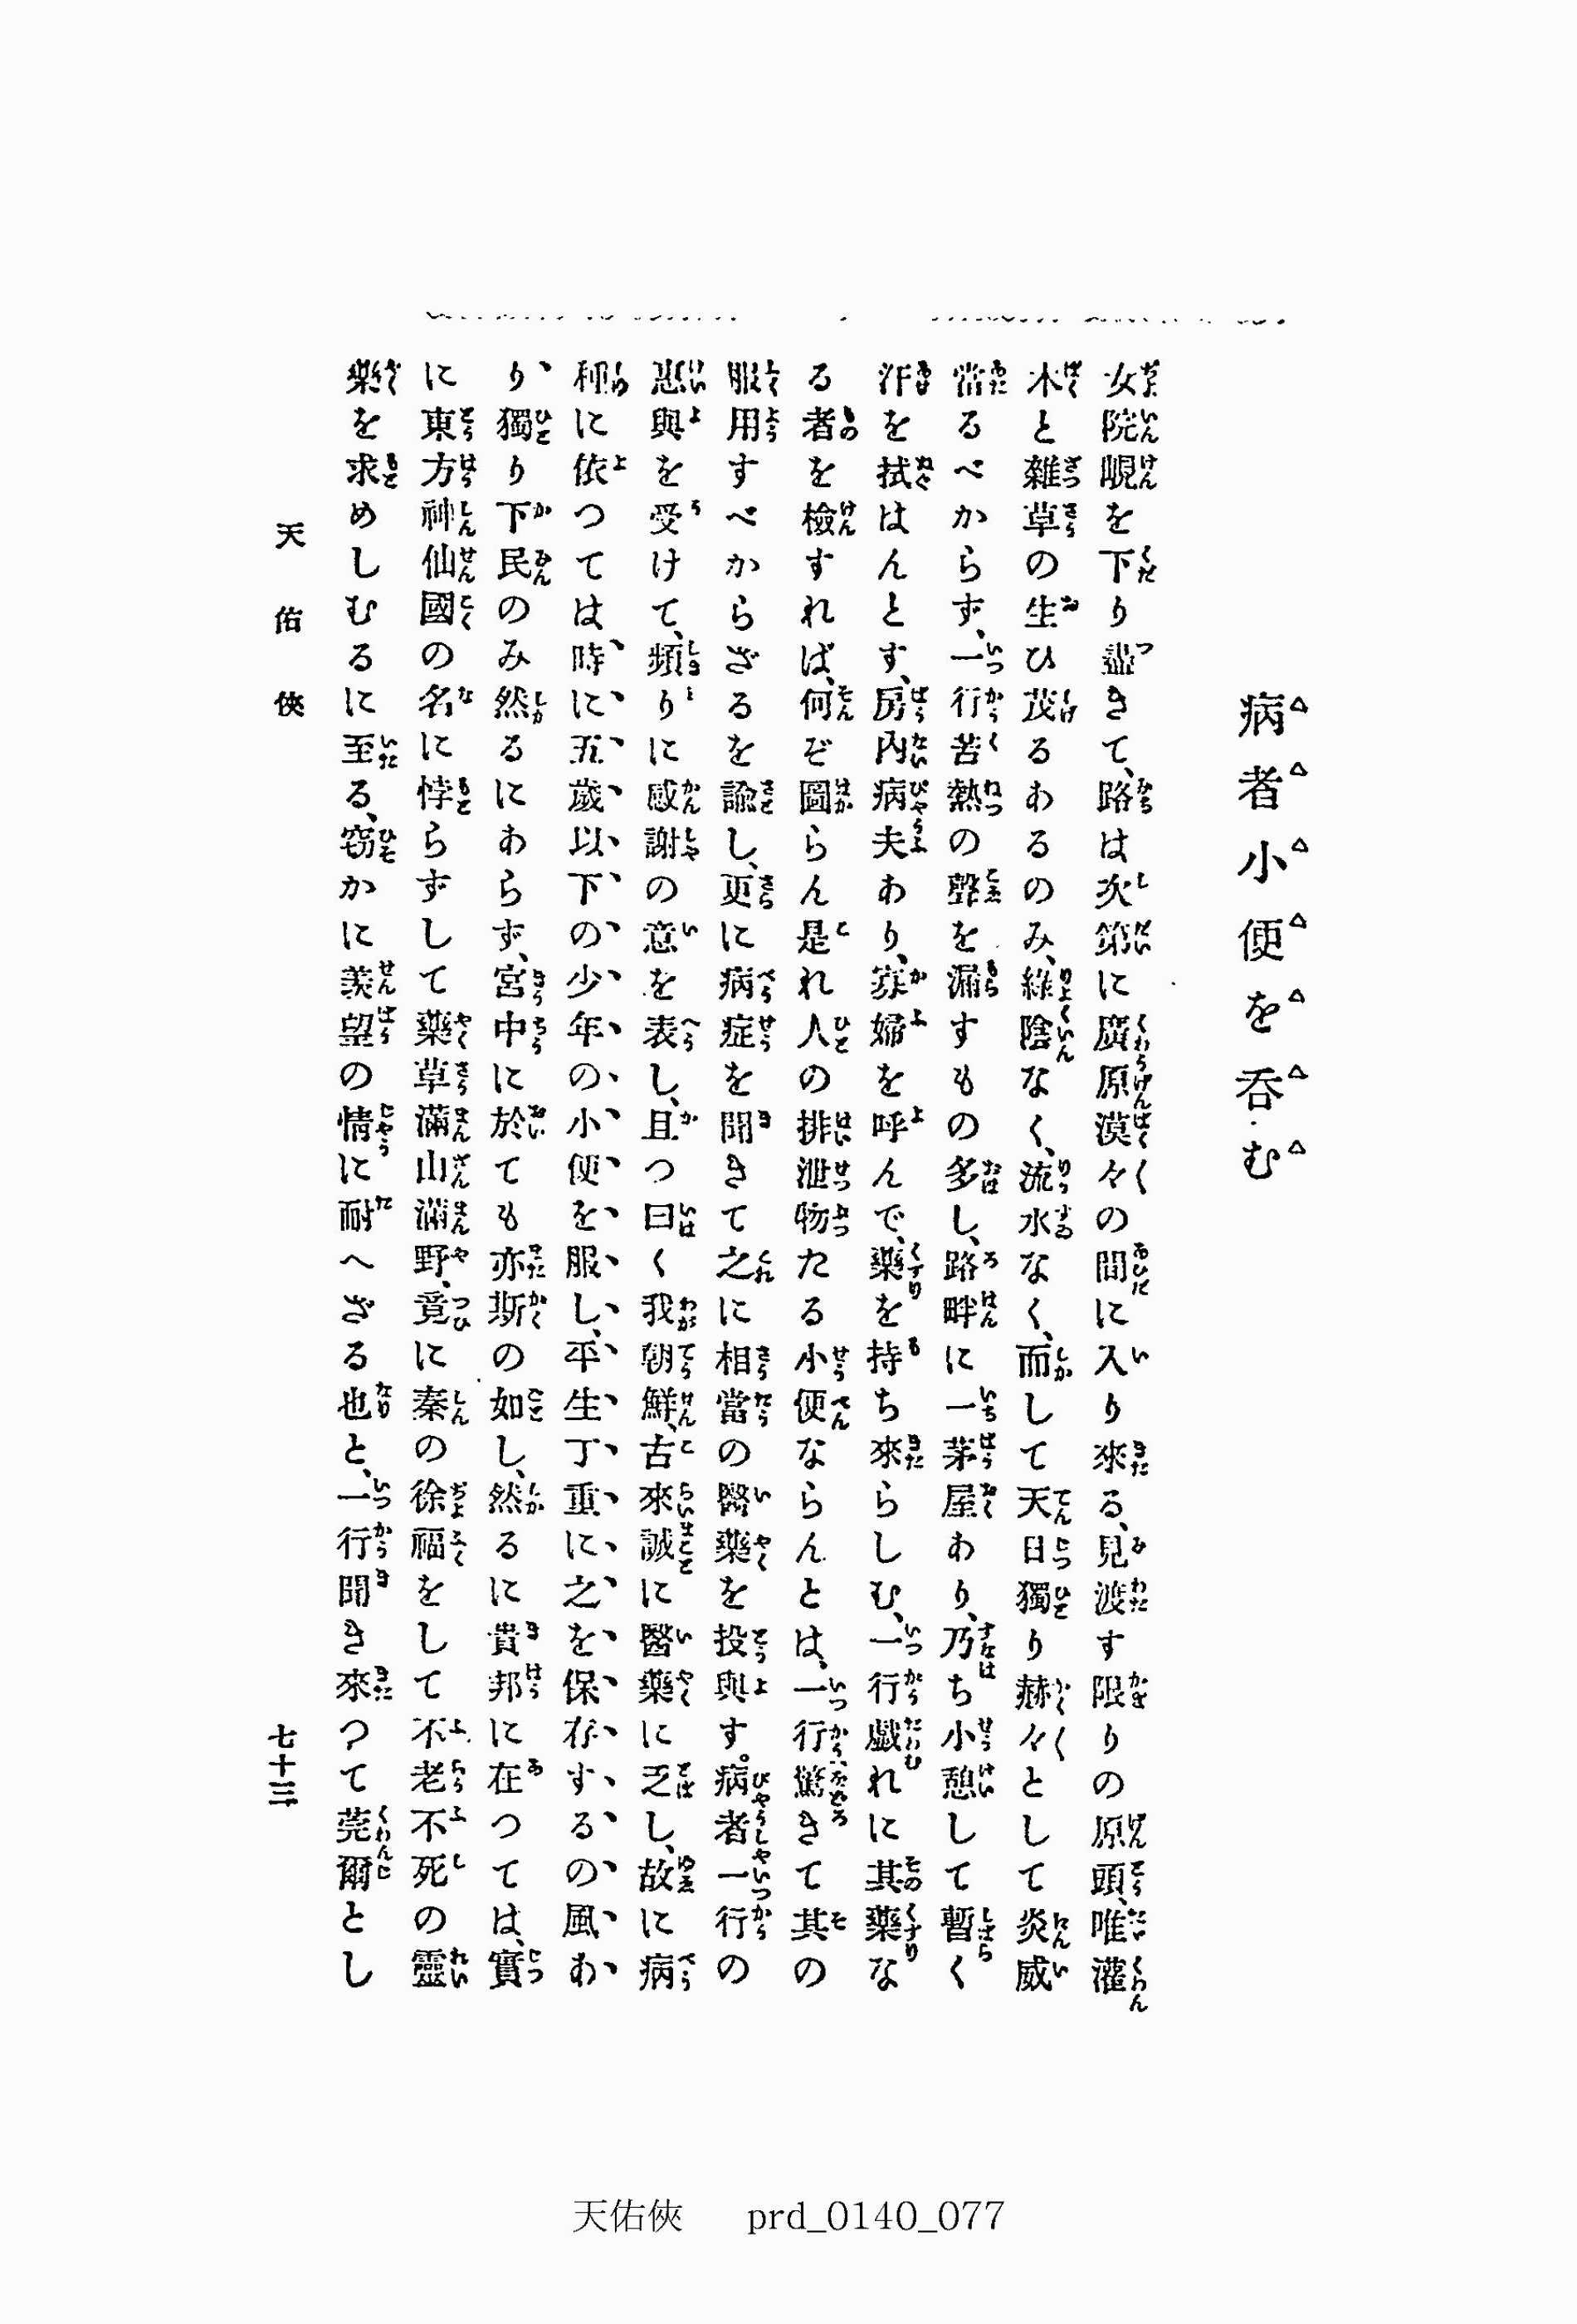 病者小便を呑む
女院峴を下り盡きて、路は次第に廣原漠々の間に入り來る、見渡す限りの原頭、唯灌
木と雜草の生ひ茂るあるのみ、綠陰なく、流水なく、而して天日獨り赫々として炎威
當るべからず、一行苦熱の聲を漏すもの多し、路畔に一茅屋あり、乃ち小憩して暫く
汗を拭はんとす、房内病夫あり、家婦を呼んで、藥を持ち來らしむ、一行戲れに其藥な
る者を檢すれば、何ぞ圖らん是れ人の排泄物たる小便ならんとは、一行驚きて其の
服用すべからざるを諭し、更に病症を聞きて之に相當の醫藥を投與す。病者一行の
惠與を受けて、頻りに感謝の意を表し、且つ曰く我朝鮮、古來誠に醫藥に乏し、故に病
種に依つては時に五歲以下の少年の小便を服し、平生丁重に之を保存するの風あ
り、獨り下民のみ然るにあらず、宮中に於ても亦斯の如し、然るに貴邦に在つては、實
に東方神仙國の名に悖らずして藥草滿山滿野、竟に秦の徐福をして不老不死の靈
藥を求めしむるに至る、窃かに羨望の情に耐へざる也と、一行聞き來つて莞爾とし
天佑俠
七十三
天佑俠 prd_0140_077